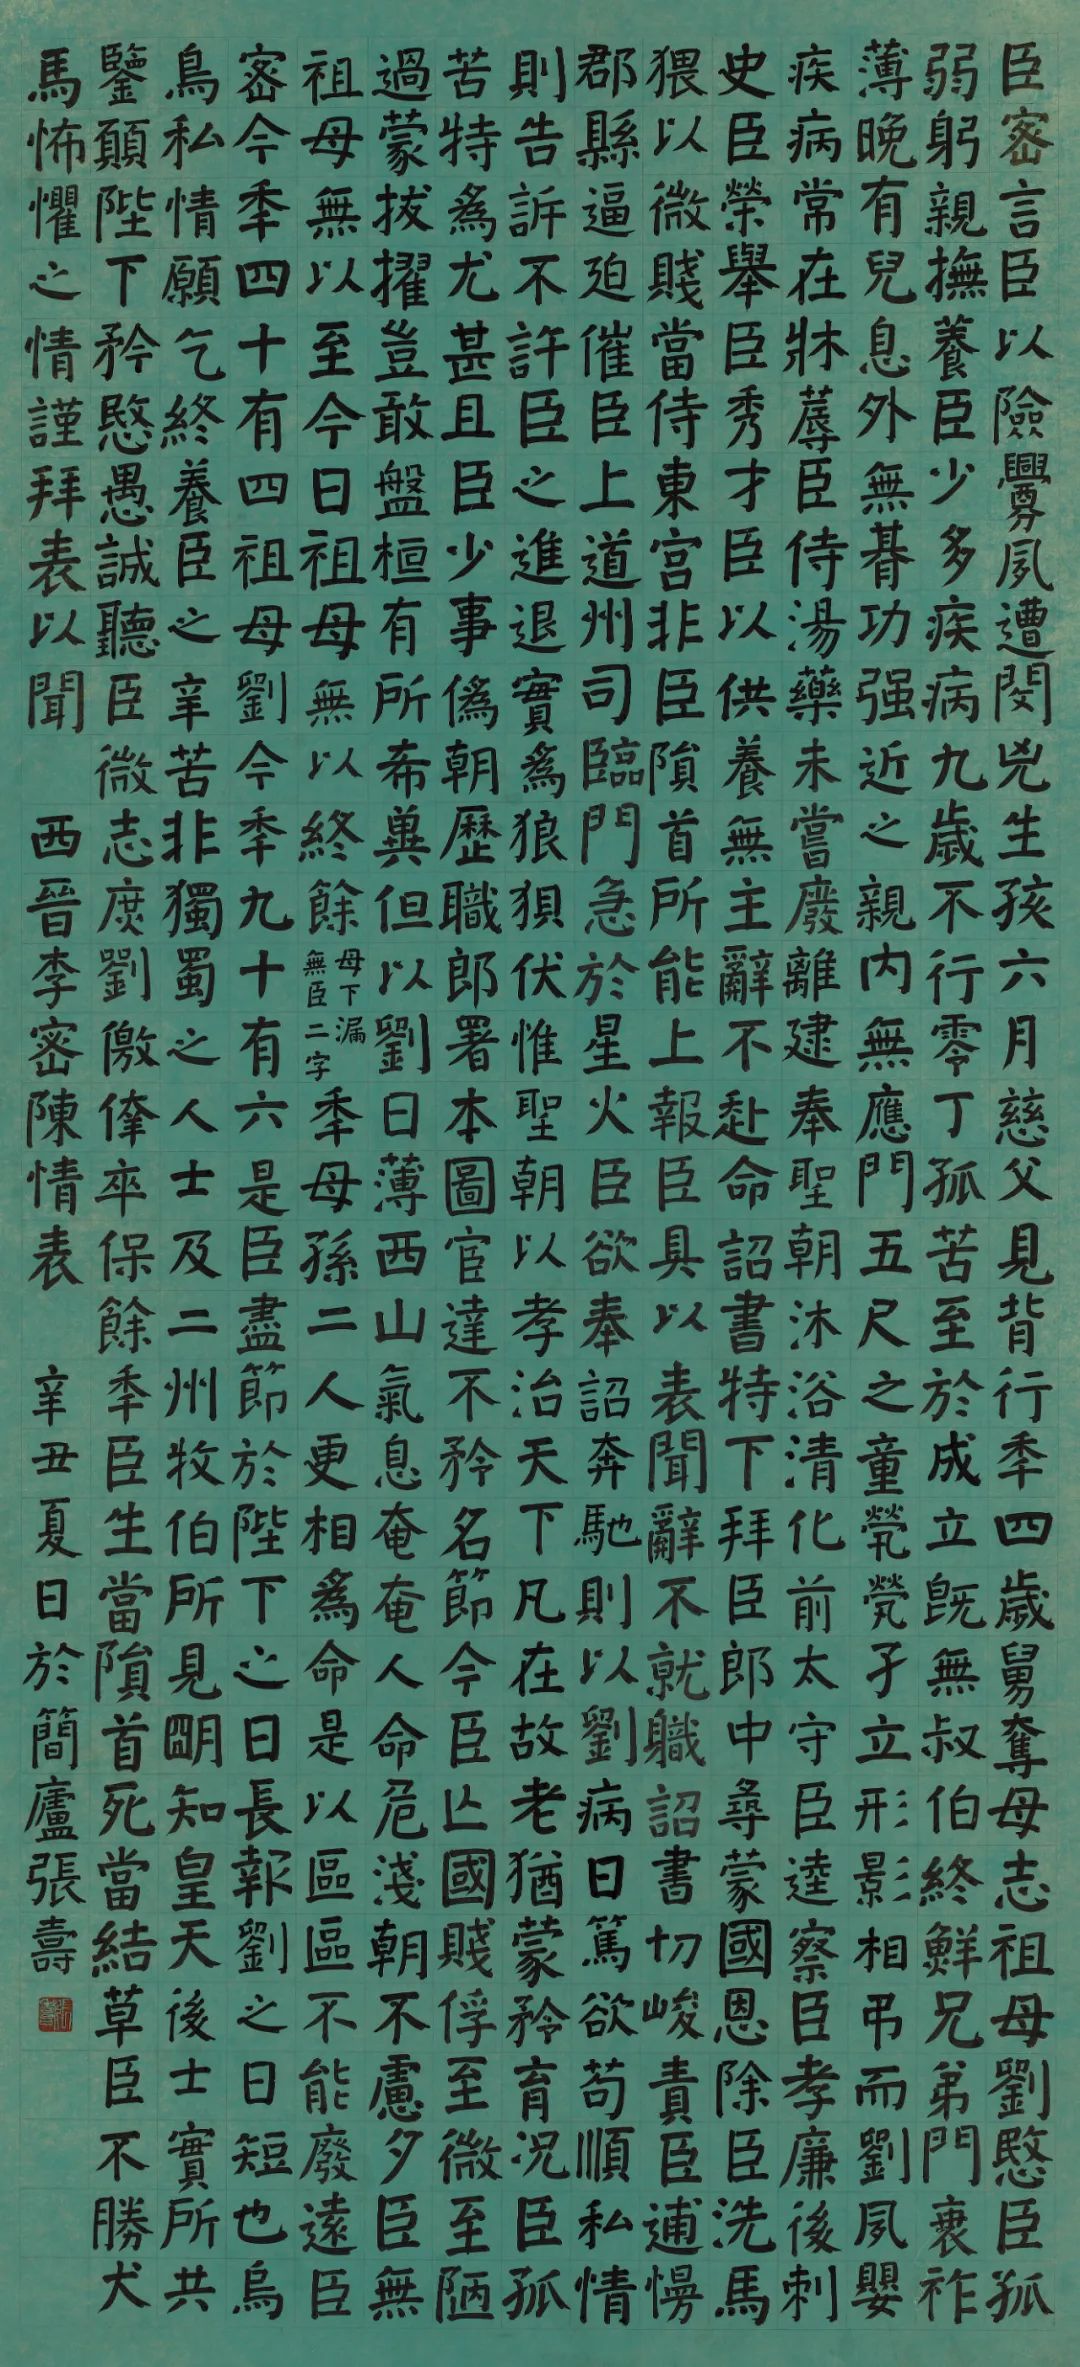 臣密言臣以險釁夙遭閔凶生孩六月慈父見背行秊四歲舅奪母志祖母劉愍臣孤
弱躬親撫養臣少多疾病九歲不行零丁孤苦至於成立旣無叔伯終鮮兄弟門衰祚
薄晚有兒息外無朞功强近之親內無應門五尺之童煢煢孑立形影相弔而劉夙嬰
疾病常在牀蓐臣侍湯藥未嘗廢離逮奉聖朝沐浴清化前太守臣逵察臣孝廉後刺
史臣榮舉臣秀才臣以供養無主辭不赴命詔書特下拜臣郎中尋蒙國恩除臣洗馬
猥以微賤當侍東宮非臣隕首所能上報臣具以表聞辭不就職詔書切峻責臣逋慢
郡縣逼迫催臣上道州司臨門急於星火臣欲奉詔奔馳則以劉病日篤欲苟順私情
則告訴不許臣之進退實爲狼狽伏惟聖朝以孝治天下凡在故老猶蒙矜育況臣孤
苦特爲尤甚且臣少事僞朝歷職郎署本圖宦達不矜名節今臣亡國賤俘至微至陋
過蒙拔擢豈敢盤桓有所希冀但以劉日薄西山氣息奄奄人命危淺朝不慮夕臣無
祖母無以至今日祖母無以終餘母下漏無臣二字秊母孫二人更相爲命是以區區不能廢遠臣
密今秊四十有四祖母劉今秊九十有六是臣盡節於陛下之日長報劉之日短也烏
鳥私情願乞終養臣之辛苦非獨蜀之人士及二州牧伯所見朙知皇天後士實所共
鑒願陛下矜愍愚誠聽臣微志庶劉僥倖卒保餘秊臣生當隕首死當結草臣不勝犬
馬怖懼之情謹拜表以聞 西晉李密陳情表 辛丑夏日於簡廬張壽